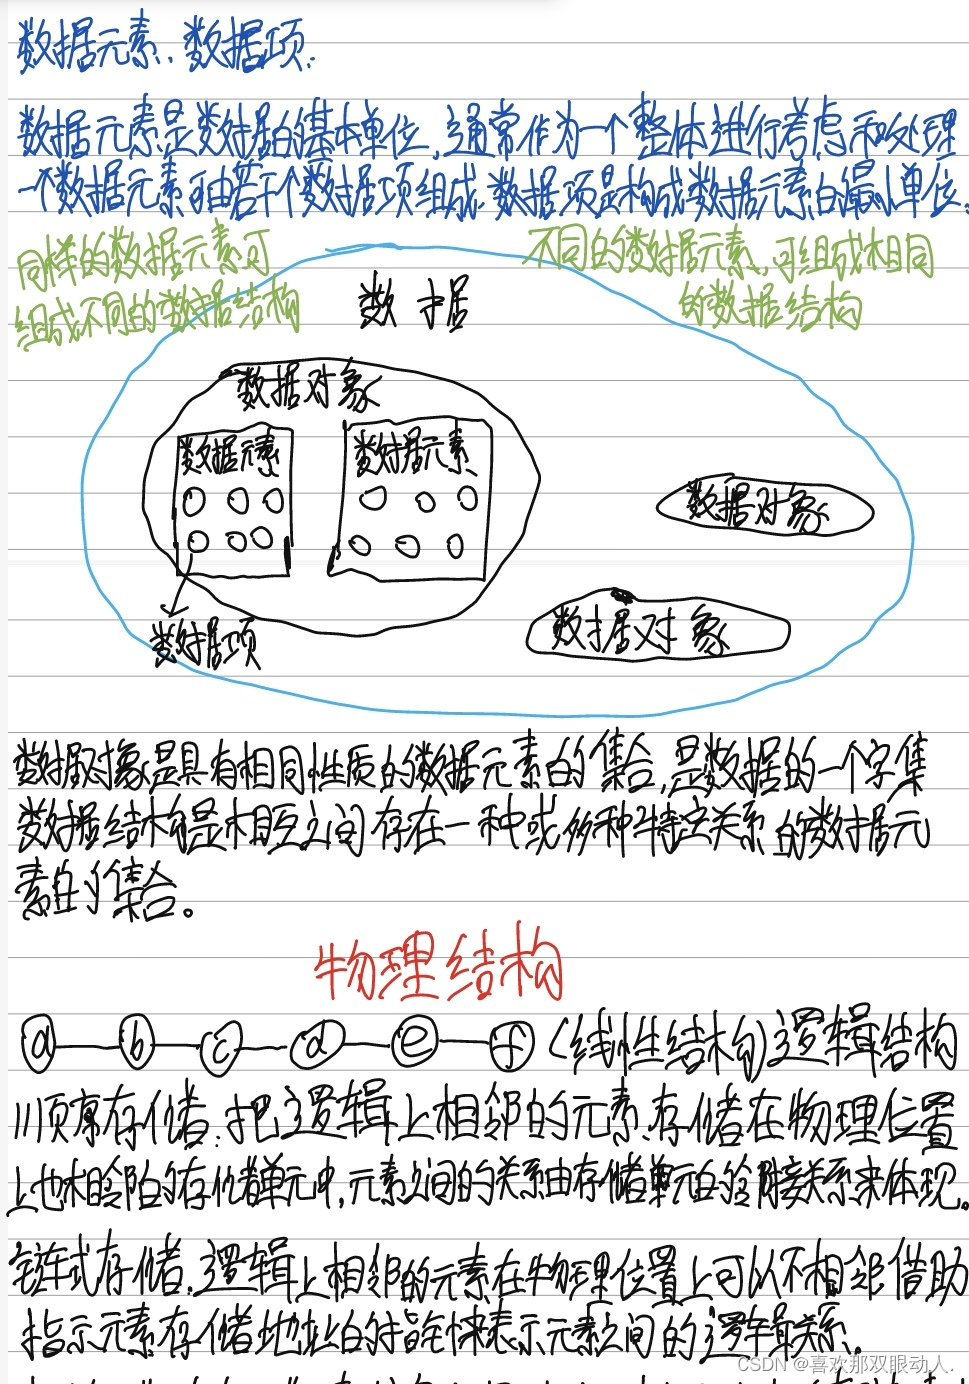 数据元素、数据项.
数据元素是数据的基本单位,通常作为一个整体进行考虑和处理
一个数据元素可由若干个数据项组成.数据项是构成数据元素的最小单位.
同样的数据元素可
组成不同的数据结构
不同的数据元素,可组成相同
的数据结构
数据
数据对象
数据元素
数据元素
数据项
数据对象
数据对象
数据对象是具有相同性质的数据元素的集合,是数据的一个字集
数据结构是相互之间存在一种或多种特定关系的数据元
素的集合。
物理结构
a b c d e f (线性结构)逻辑结构
顺序存储:把逻辑上相邻的元素存储在物理位置
上也相邻的存储单元中,元素之间的关系由存储单元的邻接关系来体现。
链式存储.逻辑上相邻的元素在物理位置上可以不相邻借助
指示元素存储地址的指针来表示元素之间的逻辑关系.
CSDN @喜欢那双眼动人.